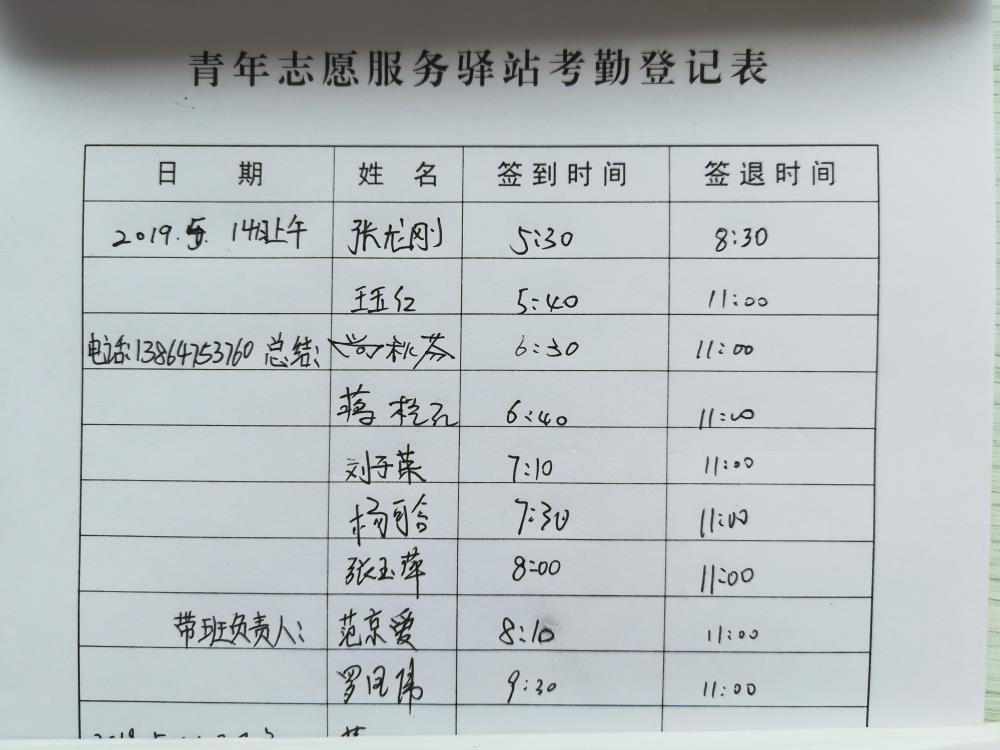 青年志愿服务驿站考勤登记表
日 期 姓 名 签到时间 签退时间
2019.5. 14日上午 张龙刚 5:30 8:30
王玉红 5:40 11:00
电话:13864753760 总结: 秋芬 6:30 11:00
蒋 6:40 11:00
刘子荣 7:10 11:00
杨可合 7:30 11:00
张玉萍 8:00 11:00
带班负责人: 范京爱 8:10 11:00
罗 伟 9:30 11:00
2019.5.